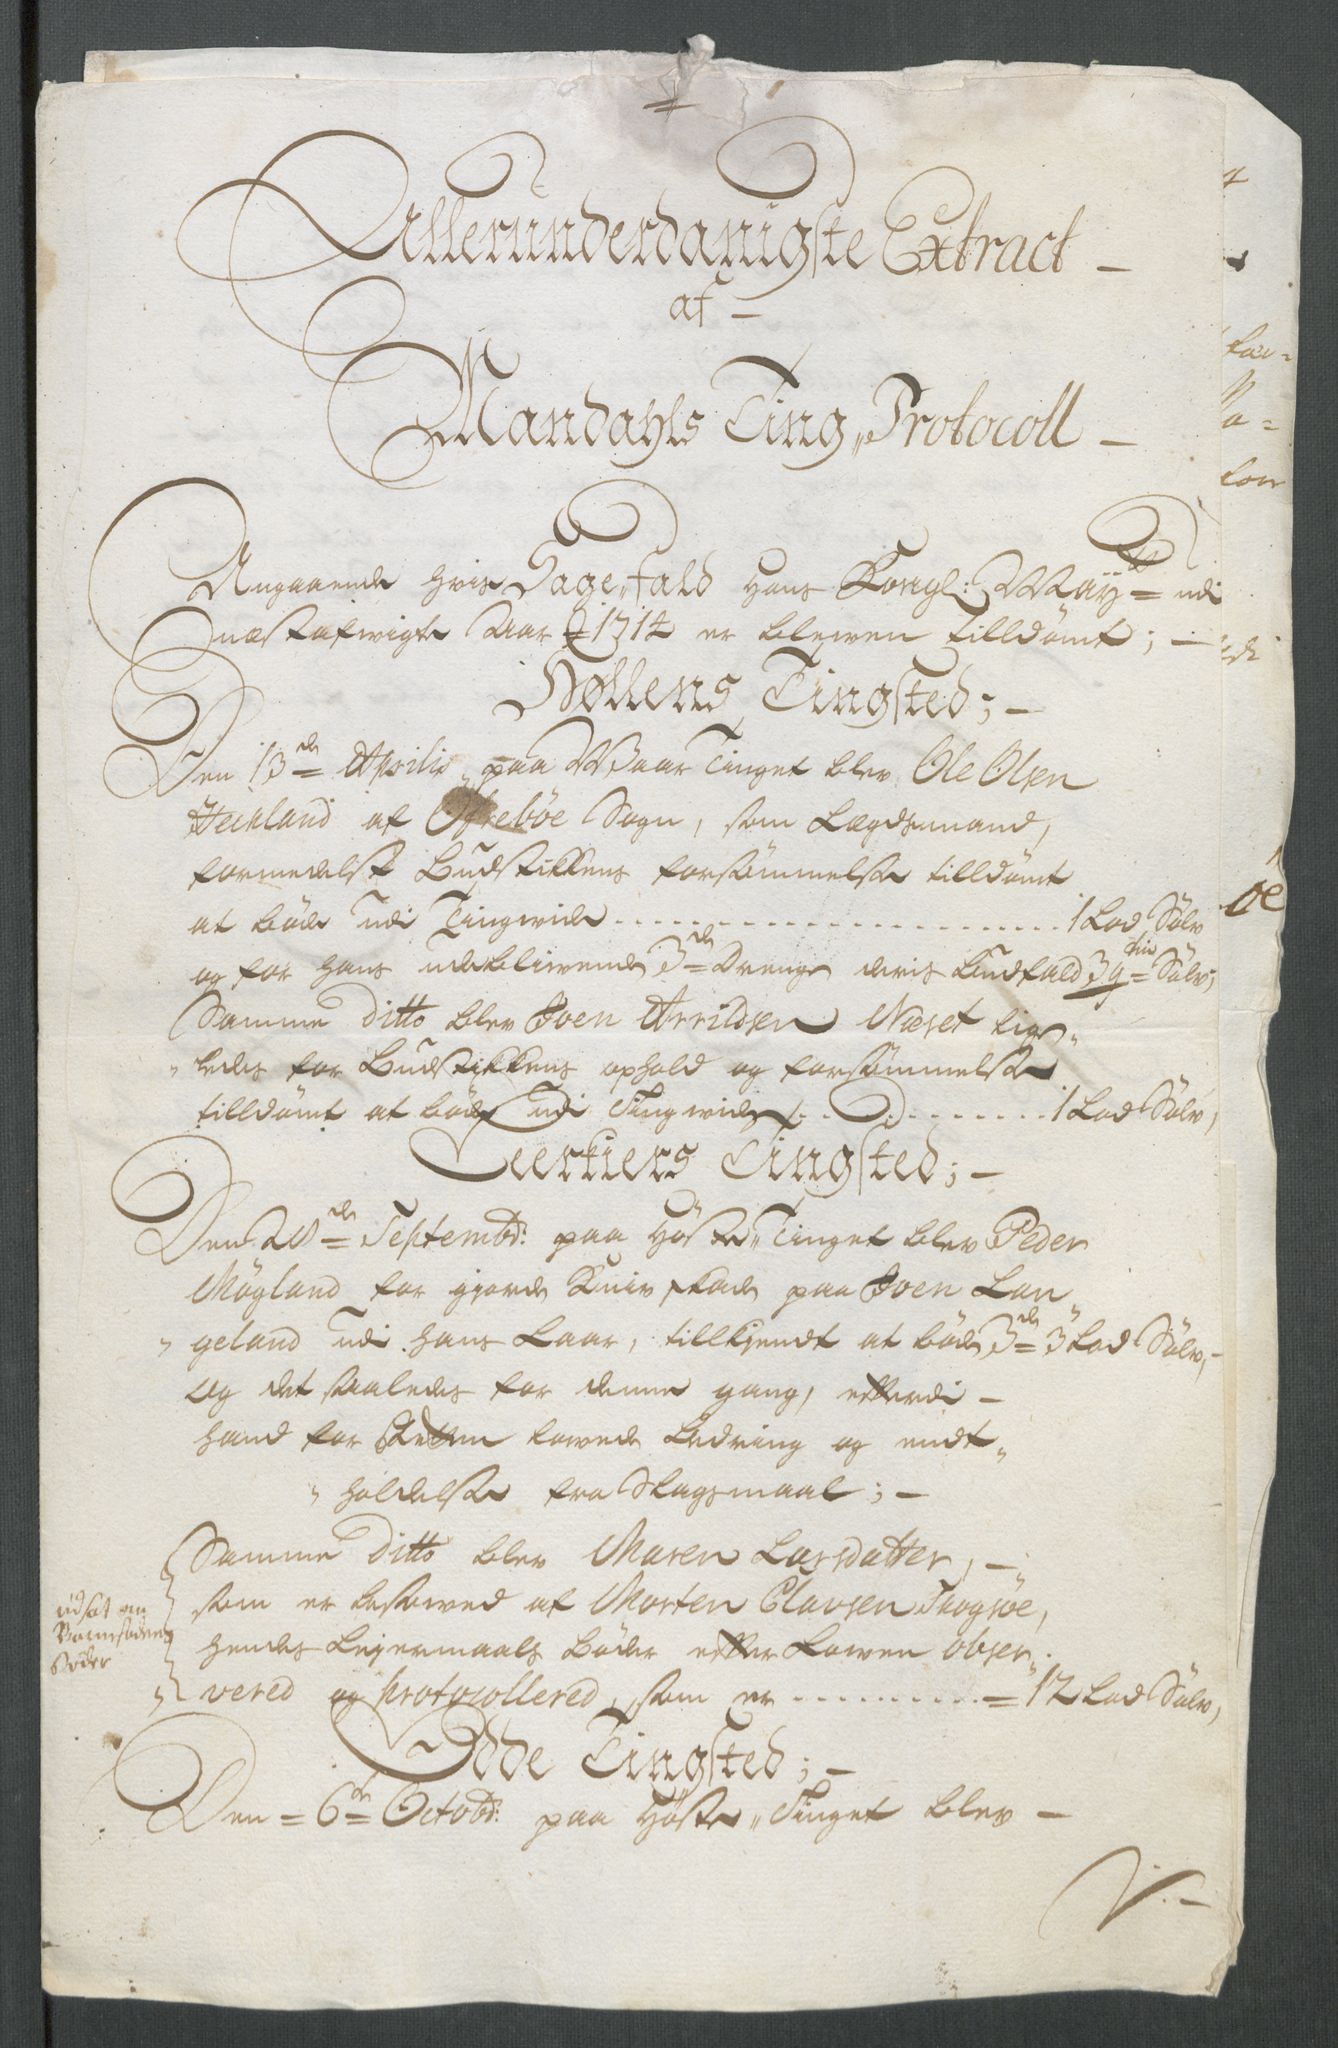 Allerunderdanigste Extract –
af –
Mandahls Ting„Protocoll –
Angaaende hvis Sage„fald Hans Kongl: Maÿ= udi
næstafwigte Aar 1714 er blewen tilldömt; –
Höllens Tingsted; –
Den 13de Aprilis paa WaarTinget blev Ole Olsen
Hechland af Öfrebøe Sogn, som Lægdsmand,
formedelst Budstikkens forsömmelse tilldömt
at böde udi Tingwide ........ 1 Lod Sölv
og for hans udeblivende 3de Drenge deris Budfald 3 qtin Sölv;
Samme Ditto blev Joen Arrildsen Næset lige„
„ledes for Budstikkens ophold og forsömmelse
tilldömt at böde udi Tingwide ........ 1 Lod Sölv,
Eerkiers Tingsted; –
Den 20de Septembr: paa Höste„Tinget blev Peder
Mögland for gjorde Kniv skade paa Joen Lan„
„geland udi hans Laar, tillkjendt at böde 3de 3 Lod Sölv, –
og det saaledes for denne gang, efterdi –
hand for Retten lowede bedring og endt„
„holdelse fra Slagsmaal; –
Samme Ditto blev Maren Larsdatter, –
som er besowed af Morten Clausen Skogsöe,
hendes Leyermaals Böder efter Lowen obser„
„vered og protocollered, som er ........ = 12 Lod Sölv,
udsat
Böder
Odde Tingsted; –
Den = 6te Octobr: paa Höste„Tinget blev –